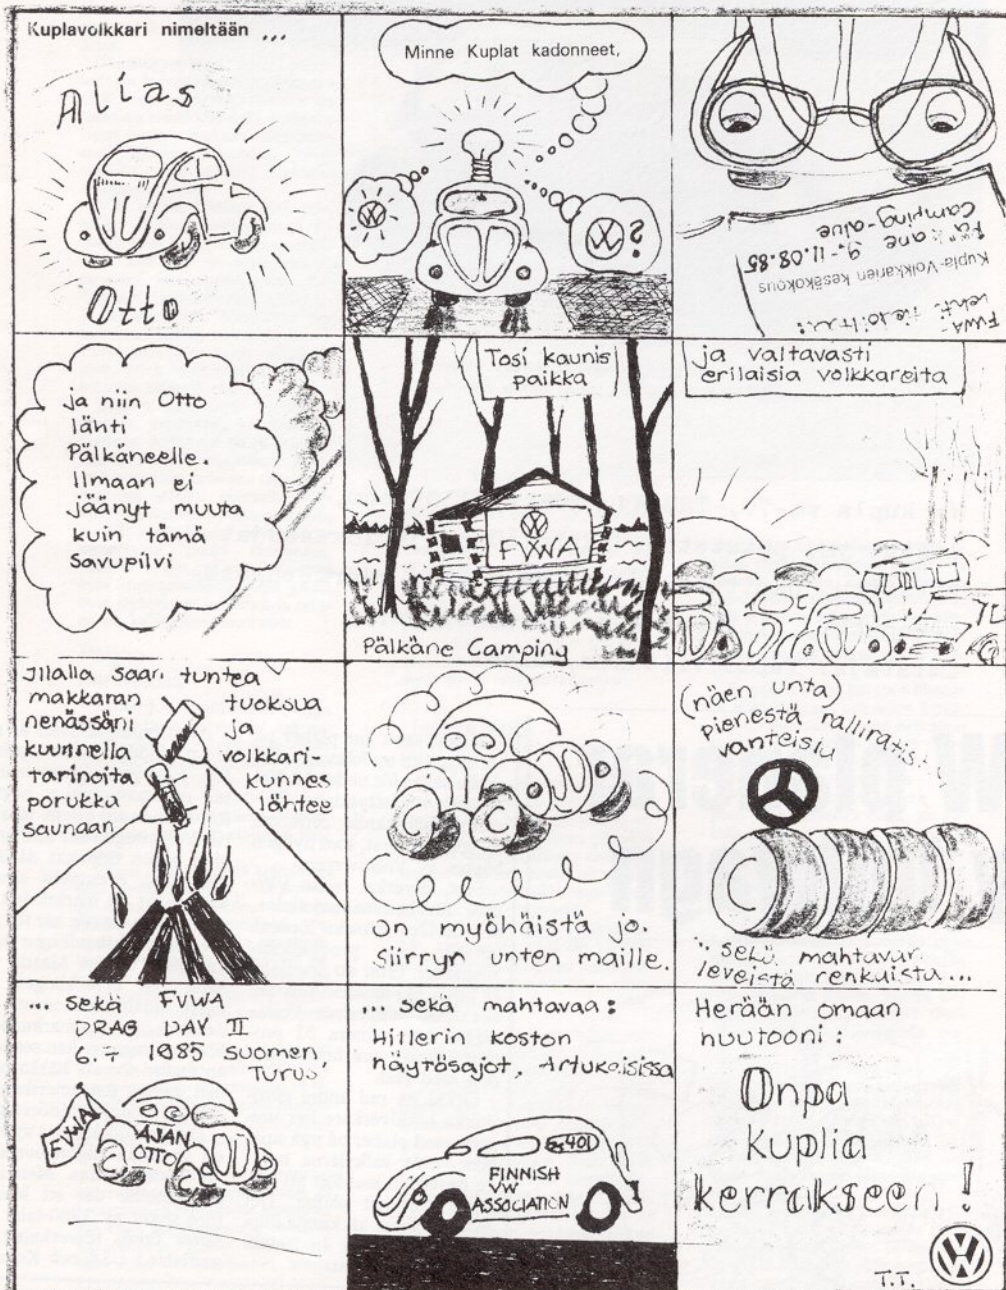 Kuplavolkkari nimeltään ...
Alias
Otto
Minne Kuplat kadonneet,
?
FVWA-
lehti
Kupla-Volkkarien kesäkokous
9.-11.08.85
Camping-alue
ja niin Otto
lähti
Pälkäneelle.
Ilmaan ei
jäänyt muuta
kuin tämä
savupilvi
Tosi kaunis
paikka
FVWA
Pälkäne Camping
ja valtavasti
erilaisia volkkareita
Illalla saan tuntea
makkaran tuoksua
nenässäni ja
kuunnella volkkari-
tarinoita kunnes
porukka lähtee
saunaan
On myöhäistä jo.
Siirryn unten maille.
(näen unta)
pienestä
... sekä mahtavan
leveistä renkaista...
... sekä FVWA
DRAG DAY III
6.7 1985 Suomen
FVWA
AJAN
OTTO
... sekä mahtavaa:
Hillerin koston
näytösajot, Artukaisissa
401
FINNISH
VW
ASSOCIATION
Herään omaan
huutooni:
Onpa
kuplia
kerrakseen!
T.T.